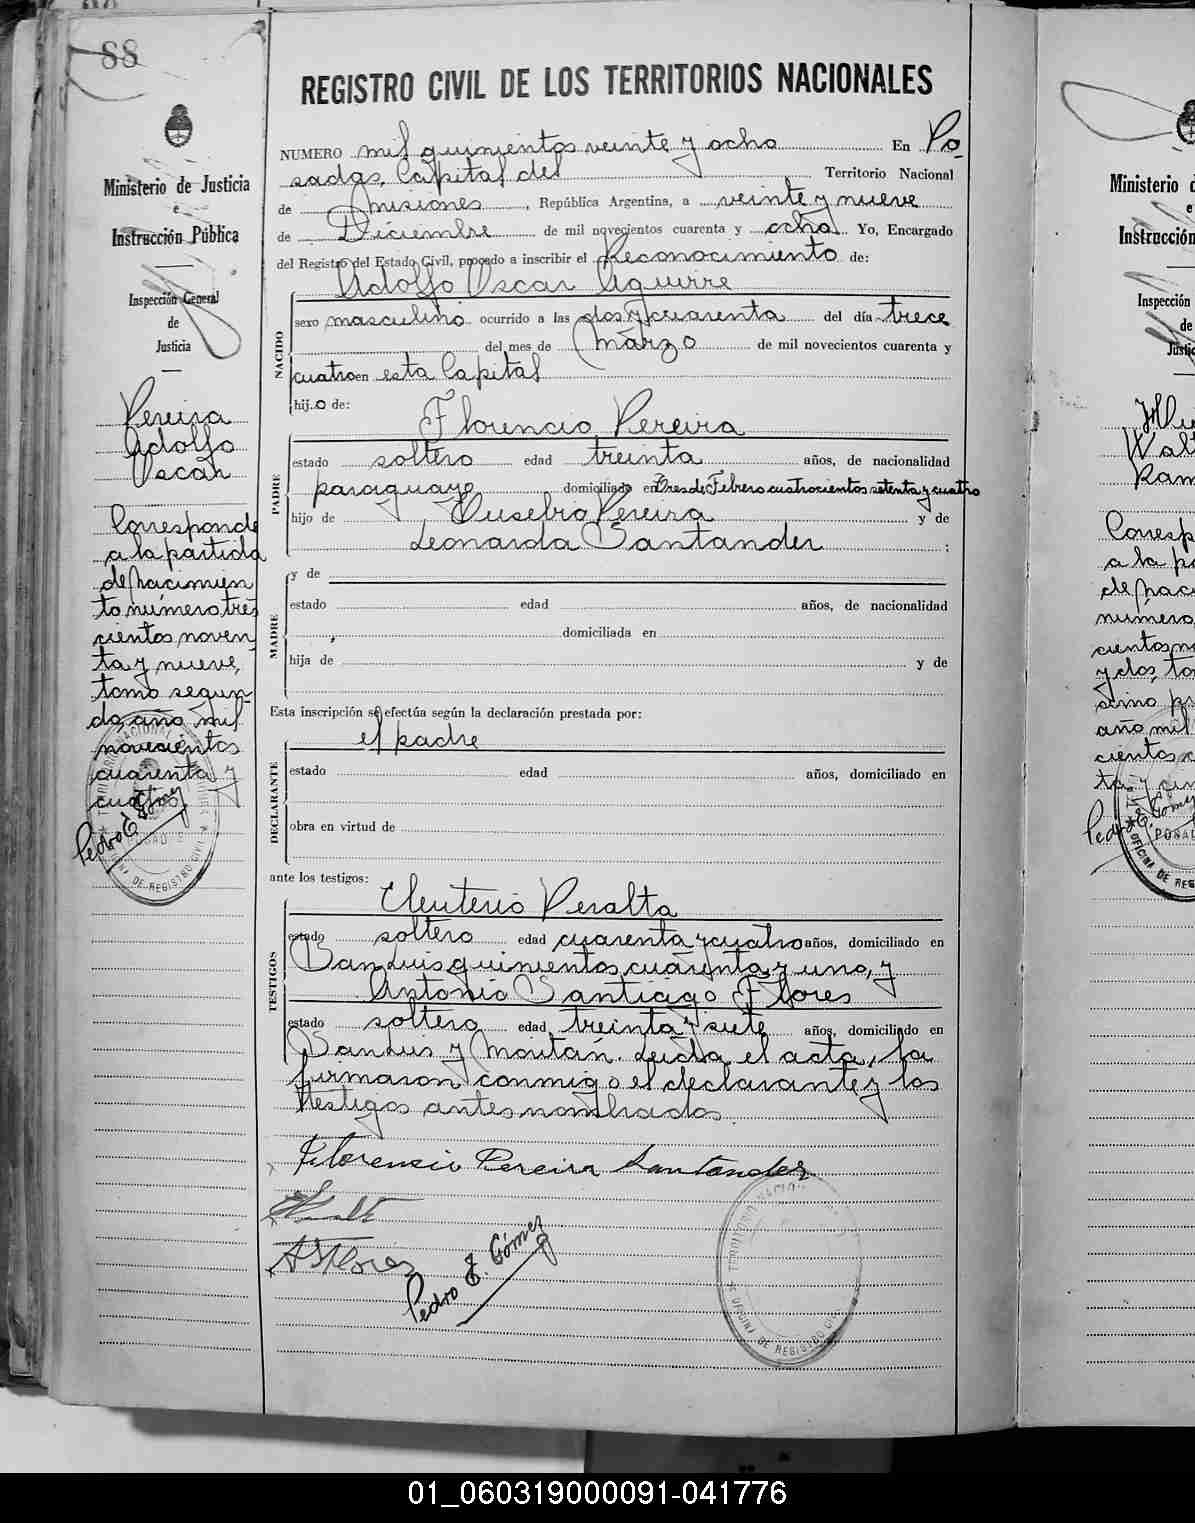 88
Ministerio de Justicia
e
Instrucción Pública
Inspección General
de
Justicia
Pereira
Adolfo
Oscar
Corresponde
a la partida
de nacimien
to número tres
cientos noven
ta y nueve,
tomo segun-
do, año mil
novecientos
cuarenta y
cuatro
Pedro E. Gómez
REGISTRO CIVIL DE LOS TERRITORIOS NACIONALES
NUMERO mil quinientos veinte y ocho En Po-
sadas, Capital del Territorio Nacional
de Misiones, República Argentina, a veinte y nueve
de Diciembre de mil novecientos cuarenta y ocho Yo, Encargado
del Registro del Estado Civil, procedo a inscribir el Reconocimiento de:
Adolfo Oscar Aguirre
NACIDO
sexo masculino ocurrido a las dos y cuarenta del día trece
del mes de Marzo de mil novecientos cuarenta y
cuatro en esta Capital
hijo de:
Florencio Pereira
PADRE
estado soltero edad treinta años, de nacionalidad
paraguayo domiciliado en Tres de Febrero cuatrocientos setenta y cuatro
hijo de Eusebio Pereira y de
Leonarda Santander ;
MADRE
y de
estado edad años, de nacionalidad
, domiciliada en
hija de y de
Esta inscripción se efectúa según la declaración prestada por:
el padre
DECLARANTE
estado edad años, domiciliado en
obra en virtud de
ante los testigos:
Eleuterio Peralta
TESTIGOS
estado soltero edad cuarenta y cuatro años, domiciliado en
San Luis quinientos cuarenta y uno, y
Antonio Santiago Flores
estado soltero edad treinta y siete años, domiciliado en
San Luis y Moritán. Leída el acta, la
firmaron conmigo el declarante y los
testigos antes nombrados.
Florencio Pereira Santander
A S Flores
Pedro E. Gómez
TERRITORIO NACIONAL
OFICINA DE REGISTRO CIVIL
Ministerio d
e
Instrucción
Inspección
de
Justic
Wal
Ram
Corresp
a la pa
de naci
número
cientos no
y dos, to
año mil
cientos c
POSAD
OFICINA DE REG
01_060319000091-041776